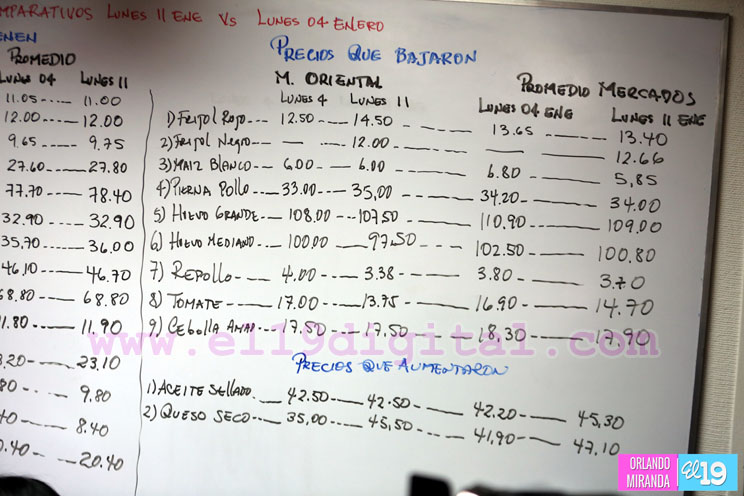 MPARATIVOS LUNES 11 ENE VS LUNES 04 ENERO
ENEN
PROMEDIO
LUNES 04 LUNES 11
11.05 ---- 11.00
12.00 ---- 12.00
9.65 ---- 9.75
27.60 ---- 27.80
77.70 ---- 78.40
32.90 ---- 32.90
35.70 ---- 36.00
46.10 ---- 46.70
68.80 ---- 68.80
11.80 ---- 11.90
3.20 -- 23.10
80 -- 9.80
40 -- 8.40
0.40 -- 20.40
PRECIOS QUE BAJARON
M. ORIENTAL PROMEDIO MERCADOS
LUNES 4 LUNES 11 LUNES 04 ENE LUNES 11 ENE
1) FRIJOL ROJO --- 12.50 --- 14.50 --- 13.65 --- 13.40
2) FRIJOL NEGRO --- — --- 12.00 --- — --- 12.66
3) MAIZ BLANCO --- 6.00 --- 6.00 --- 6.80 --- 5,85
4) PIERNA POLLO --- 33.00 --- 35,00 --- 34.20 --- 34.00
5) HUEVO GRANDE --- 108.00 --- 107.50 --- 110.90 --- 109.00
6) HUEVO MEDIANO --- 100.00 --- 97.50 --- 102.50 --- 100.80
7) REPOLLO --- 4.00 --- 3.38 --- 3.80 --- 3.70
8) TOMATE --- 17.00 --- 13.75 --- 16.90 --- 14.70
9) CEBOLLA AMAR --- 17.50 --- 17.50 --- 18,30 --- 17,90
www.el19digital.com
PRECIOS QUE AUMENTARON
1) ACEITE SELLADO --- 42.50 --- 42.50 --- 42.20 --- 45,30
2) QUESO SECO --- 35,00 --- 45,50 --- 41,90 --- 47,10
ORLANDO
MIRANDA
El 19